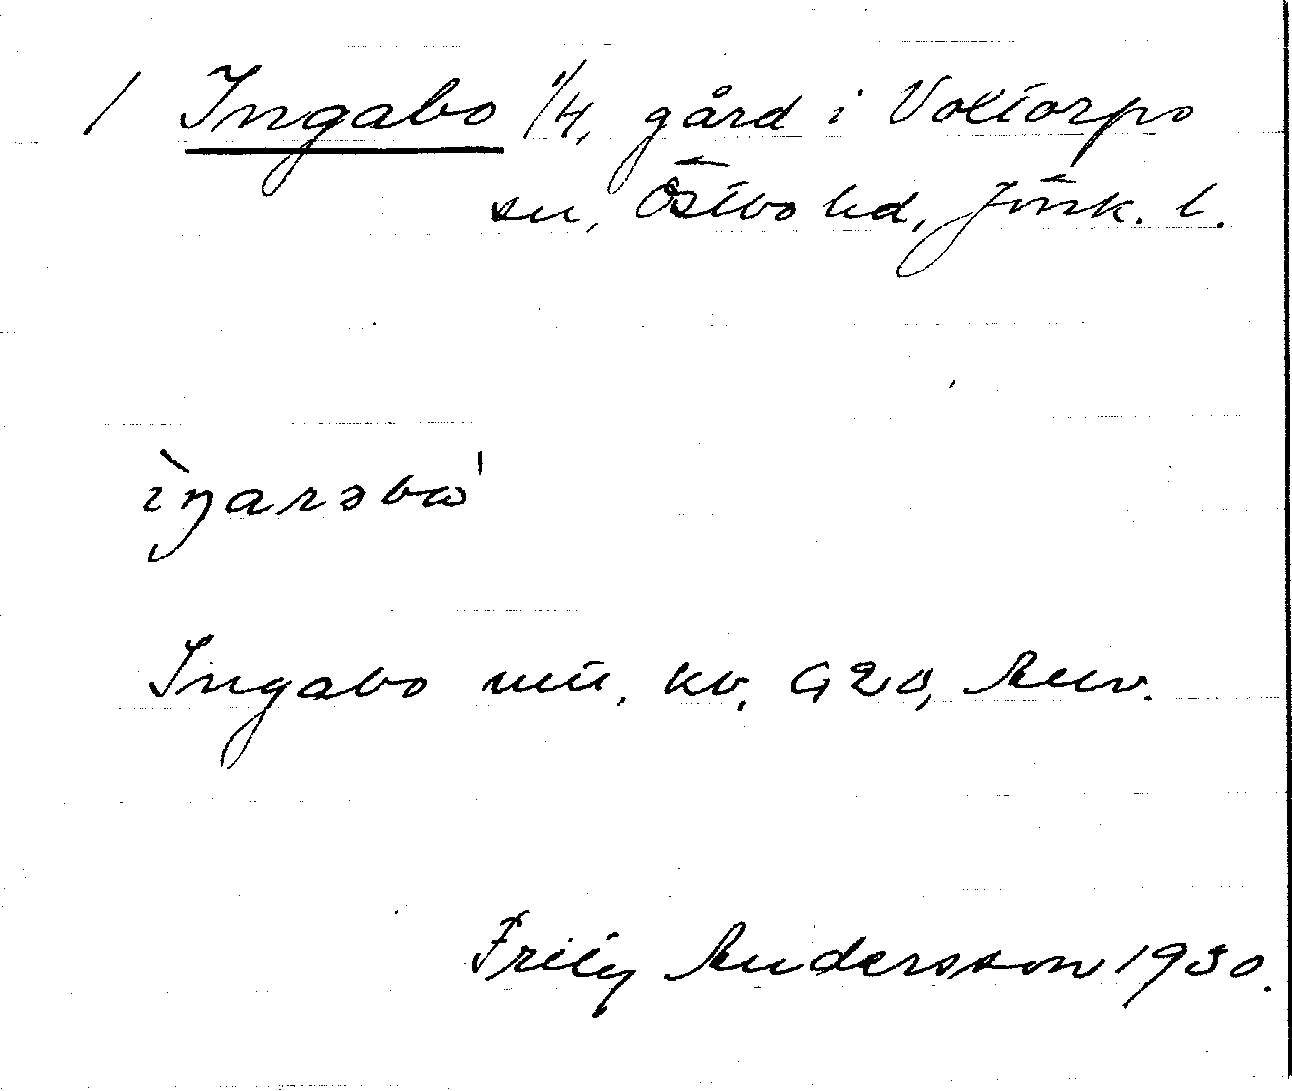 / Ingabo 1/4, gård i Voxtorps
sn, Östbo hd, Jönk. l.
ìŋarəbω'
Ingabo mtl. kv. G20, Anv.
Fritz Andersson 1930.